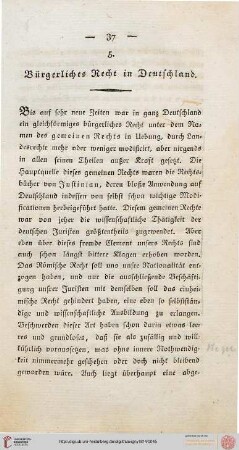 — 37 —
5.
Bürgerliches Recht in Deutschland.
Bis auf sehr neue Zeiten war in ganz Deutschland
ein gleichförmiges bürgerliches Recht unter dem Na-
men des gemeinen Rechts in Uebung, durch Lan-
desrechte mehr oder weniger modificirt, aber nirgends
in allen seinen Theilen außer Kraft gesetzt. Die
Hauptquelle dieses gemeinen Rechts waren die Rechts-
bücher von Justinian, deren bloße Anwendung auf
Deutschland indessen von selbst schon wichtige Modi-
ficationen herbeigeführt hatte. Diesem gemeinen Rechte
war von jeher die wissenschaftliche Thätigkeit der
deutschen Juristen größtentheils zugewendet. Aber
eben über dieses fremde Element unsers Rechts sind
auch schon längst bittere Klagen erhoben worden.
Das Römische Recht soll uns unsre Nationalität ent-
zogen haben, und nur die ausschließende Beschäfti-
gung unsrer Juristen mit demselben soll das einhei-
mische Recht gehindert haben, eine eben so selbststän-
dige und wissenschaftliche Ausbildung zu erlangen.
Beschwerden dieser Art haben schon darin etwas lee-
res und grundloses, daß sie als zufällig und will-
kührlich voraussetzen, was ohne innere Nothwendig-
keit nimmermehr geschehen oder doch nicht bleibend
geworden wäre. Auch liegt überhaupt eine abge-